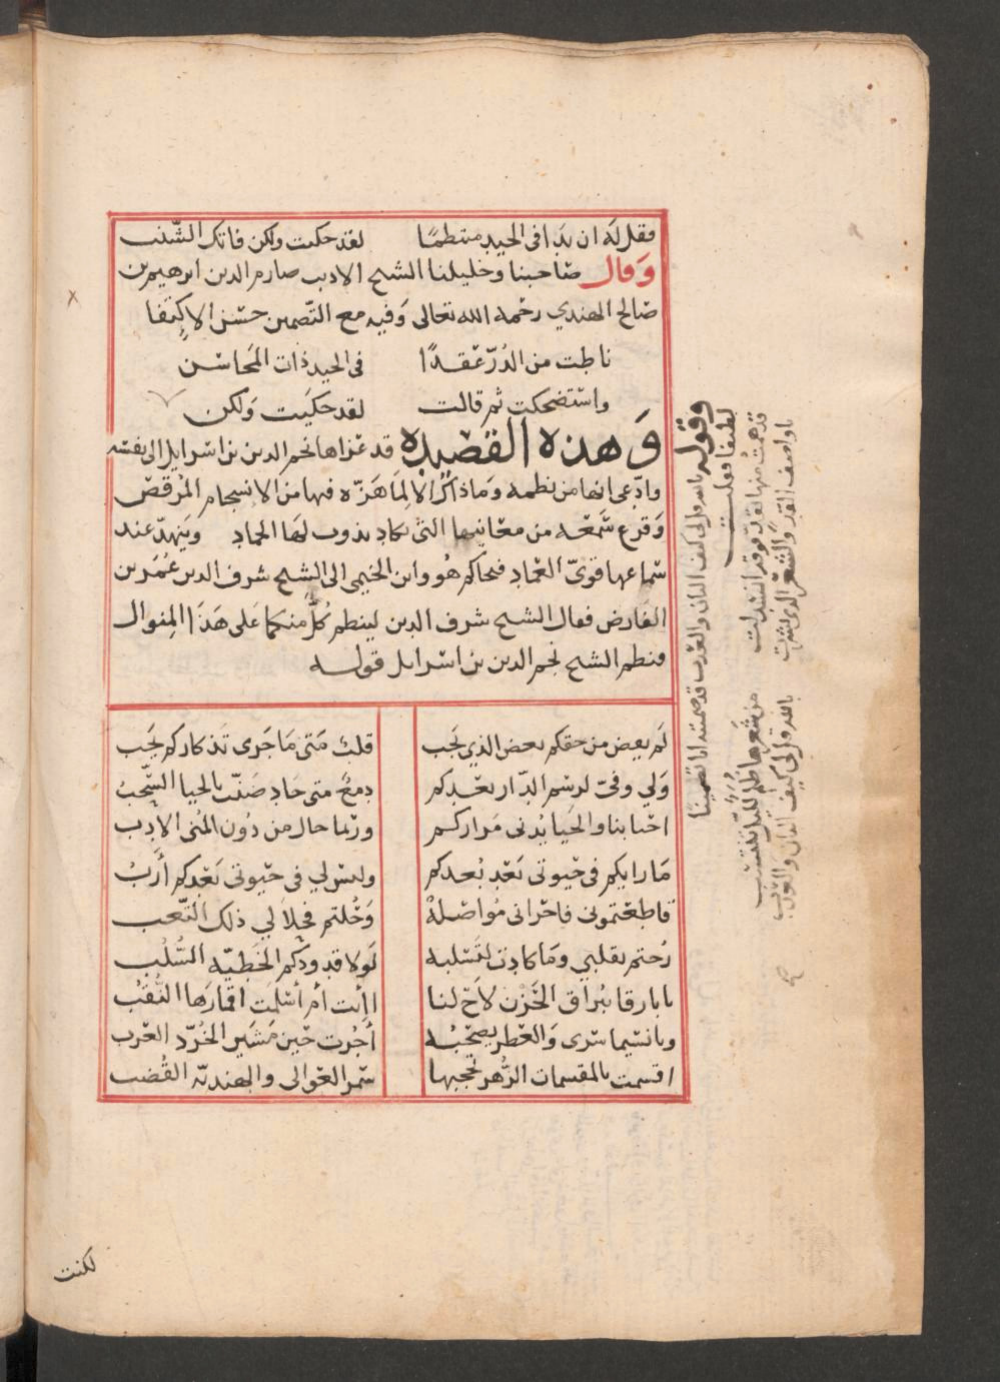 فقل له ان بدا فى الجيد منتظمًا لقد حكيت ولكن فاتك الشنب
وقال صاحبنا وخليلنا الشيخ الاديب صارم الدين ابرهيم بن
صالح الهندي رحمه الله تعالى وفيه مع التضمين حسن الاكتفا
ناطت من الدر عقدًا فى الجيد ذات المحاسن
واستضحكت ثم قالت لقد حكيت ولكن
وهذه القصيده قد عزاها نجم الدين بن اسرايل الى نفسه
وادعى انها من نظمه وماذاك الا لما هزه فيها من الانسجام المرقص
وقرع سمعه من معانيها التى يكاد يذوب لها الجماد وينهد عند
سماعها قوى العماد فتحاكم هو وابن الخيمي الى الشيخ شرف الدين عمر بن
الفارض فقال الشيخ شرف الدين لينظم كل منكما على هذا المنوال
فنظم الشيخ نجم الدين بن اسرايل قوله
لم يقض من حقكم بعض الذي يجب قلب متى ما جرى تذكاركم يجب
ولي وفى لرسم الدار بعدكم دمع متى جاد ضنت بالحيا السحب
احبابنا والحيا يدنى مزاركم وربما حال من دون المنى الادب
ما رابكم فى حيوتى بعد بعدكم وليس لي فى حيوتى بعدكم أرب
قاطعتمونى فاحزانى مواصلة وحلتم فحلا لي ذلك التعب
رحتم بقلبي وما كادت لتسلبه لولا قدودكم الخطيه السلب
يا بارقا ببراق الحزن لاح لنا اانت ام اسلمت اقمارها النقب
ويا نسيما سرى والعطر يصحبه أجرت حين مشين الخرد العرب
اقسمت بالمقسمات الزهر تحجبها سمر العوالى والهنديه القضب
لكنت
وقوله
لطيفا فقلت